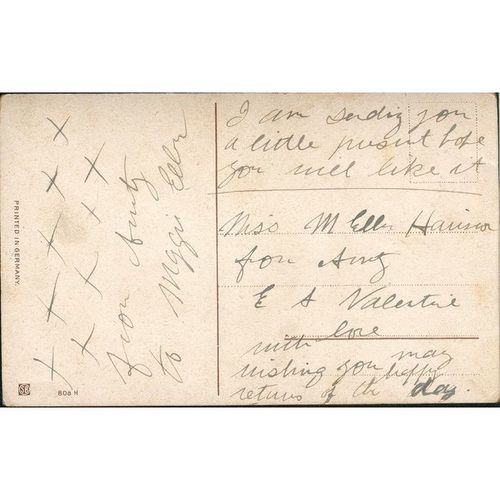 I am sending you
a little present hope
you will like it
Miss M Ellen Harrison
from Aunty
E A Valentine
with love
wishing you many happy
returns of the day.
from Aunty
to Maggie Ellen
x x x x x
x x x x
PRINTED IN GERMANY.
808 H